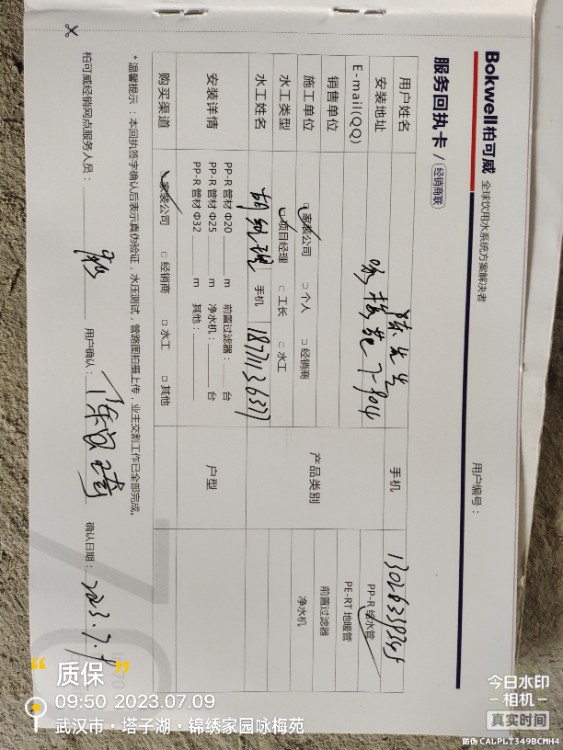 Bokwell柏可威 全球饮用水系统方案解决者
服务回执卡 / 经销商联
用户编号：
用户姓名 陈先生 手机
安装地址 咏梅苑7-904
E-mail(QQ)
销售单位 产品类别 PP-R 给水管
PE-RT 地暖管
前置过滤器
净水机
施工单位 家装公司 个人 经销商
水工类型 项目经理 工长 水工
水工姓名 手机
安装详情 PP-R 管材 Φ20 m 前置过滤器： 台
PP-R 管材 Φ25 m 净水机： 台
PP-R 管材 Φ32 m 其他：
户型
购买渠道 家装公司 经销商 水工 其他
*温馨提示：本回执签字确认后表示真伪验证，水压测试，管路图拍摄上传，业主交割工作已全部完成。
柏可威经销网点服务人员： 用户确认： 确认日期：2023.7.9
质保
09:50 2023.07.09
武汉市·塔子湖·锦绣家园咏梅苑
今日水印
-相机-
真实时间
防伪 CALPLT349BCMH4